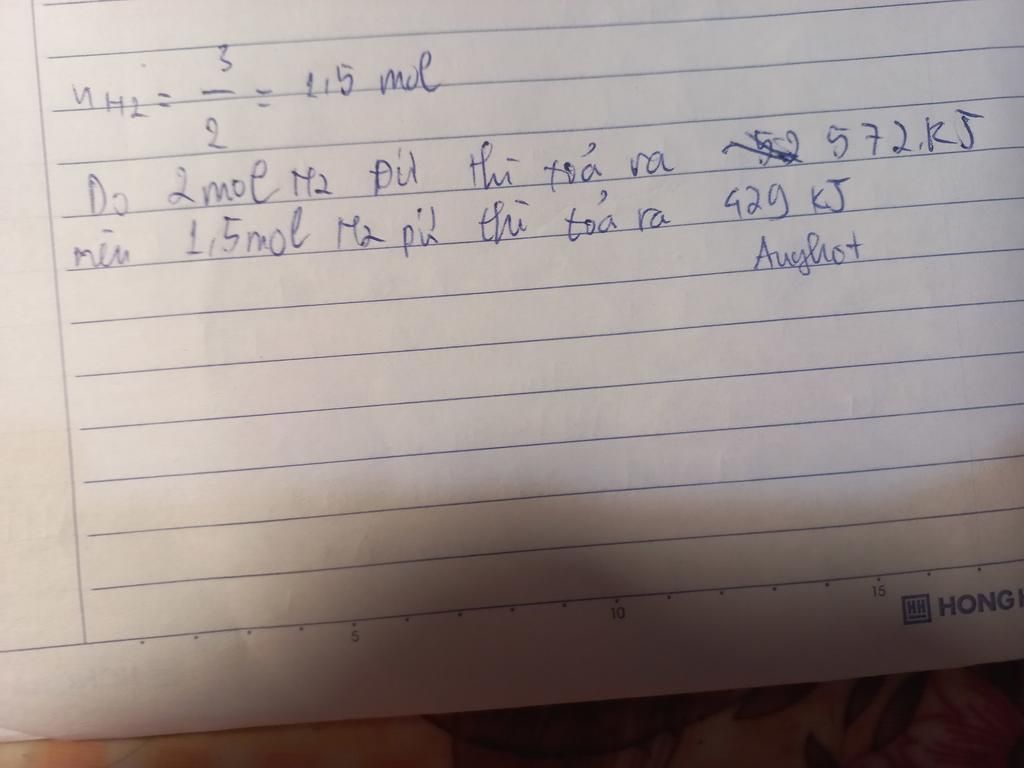 nH2 = 3/2 = 1,5 mol
Do 2mol H2 pư thì toả ra 572.KJ
nên 1,5mol H2 pư thì toả ra 429 KJ
5 10 15
HH HONG